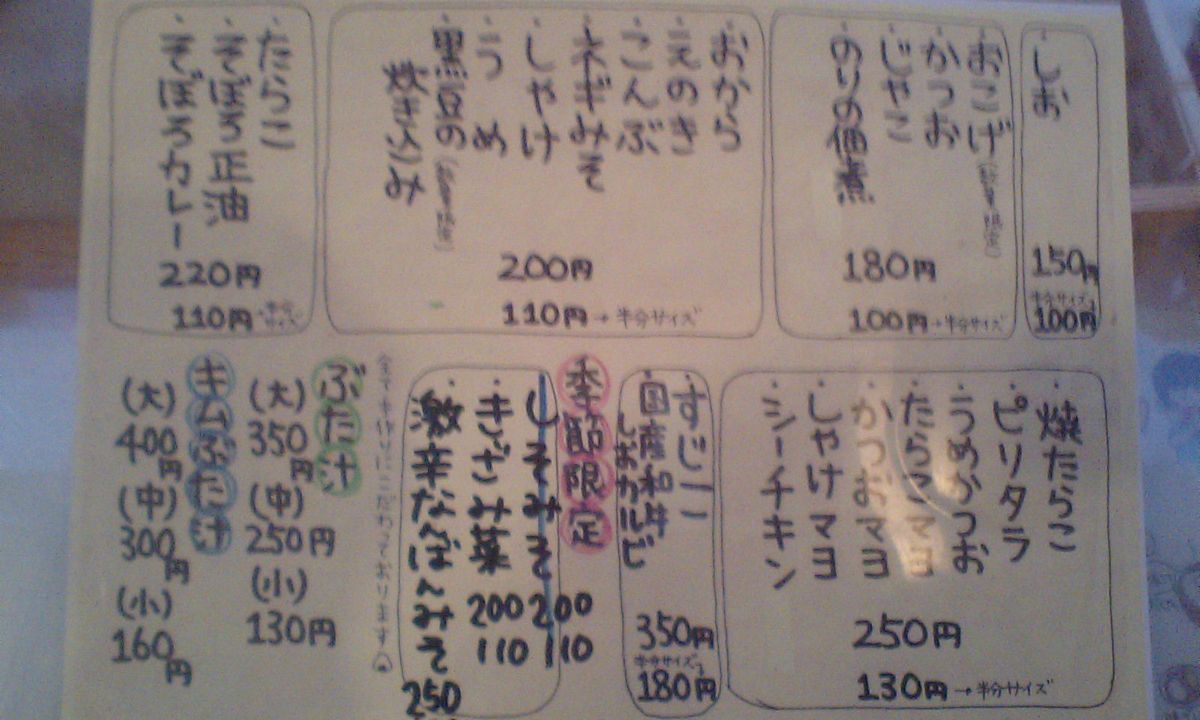 ・しお
150円
半分サイズ
100円
・おこげ
・かつお
・じゃこ
・のりの佃煮
180円
100円→半分サイズ
・おから
・えのき
・こんぶ
・ネギみそ
・しゃけ
・うめ
・黒豆の
炊きこみ
200円
110円→半分サイズ
・たらこ
・そぼろ正油
・そぼろカレー
220円
110円→半分サイズ
・焼たらこ
・ピリタラ
・うめかつお
・たらこマヨ
・かつおマヨ
・しゃけマヨ
・シーチキン
250円
130円→半分サイズ
・すじこ
・国産和牛
しおカルビ
350円
半分サイズ
180円
季節限定
・しそみそ
200
110
・きざみ菜
200
110
・激辛なんばんみそ
250
ぶた汁
(大)
350円
(中)
250円
(小)
130円
キムぶた汁
(大)
400円
(中)
300円
(小)
160円